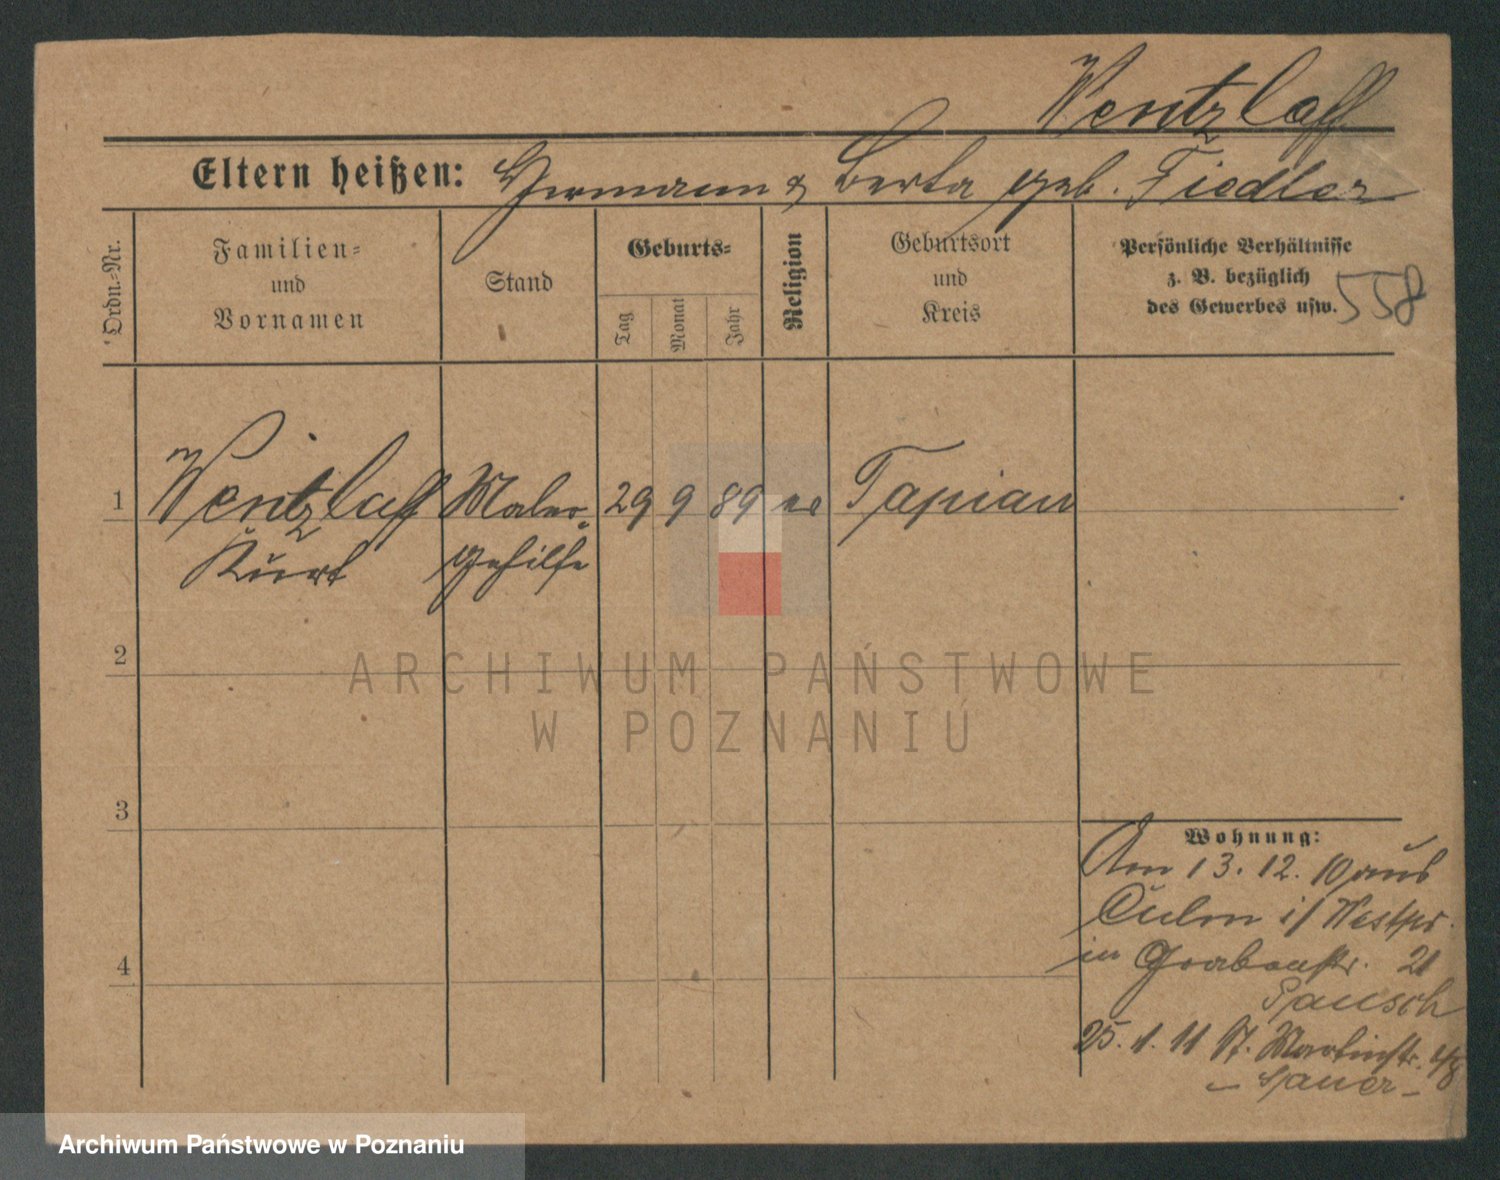 Wentzlaff
Eltern heißen: Hermann & Berta geb. Fiedler
Ordn.-Nr.
Familien-
und
Vornamen
Stand
Geburts-
Tag
Monat
Jahr
Religion
Geburtsort
und
Kreis
Persönliche Verhältnisse
z. B. bezüglich
des Gewerbes usw.
558
1 Wentzlaff Maler- 29 9 89 ev Tapiau
Kurt gehilfe
2
3
4
Wohnung:
Am 13. 12. 10 aus
Culm i/ Westpr.
in Grabenstr. 21
Pausch
25. 1. 11 St. Martinstr. 48
- Sauer -
ARCHIWUM PAŃSTWOWE
W POZNANIU
Archiwum Państwowe w Poznaniu